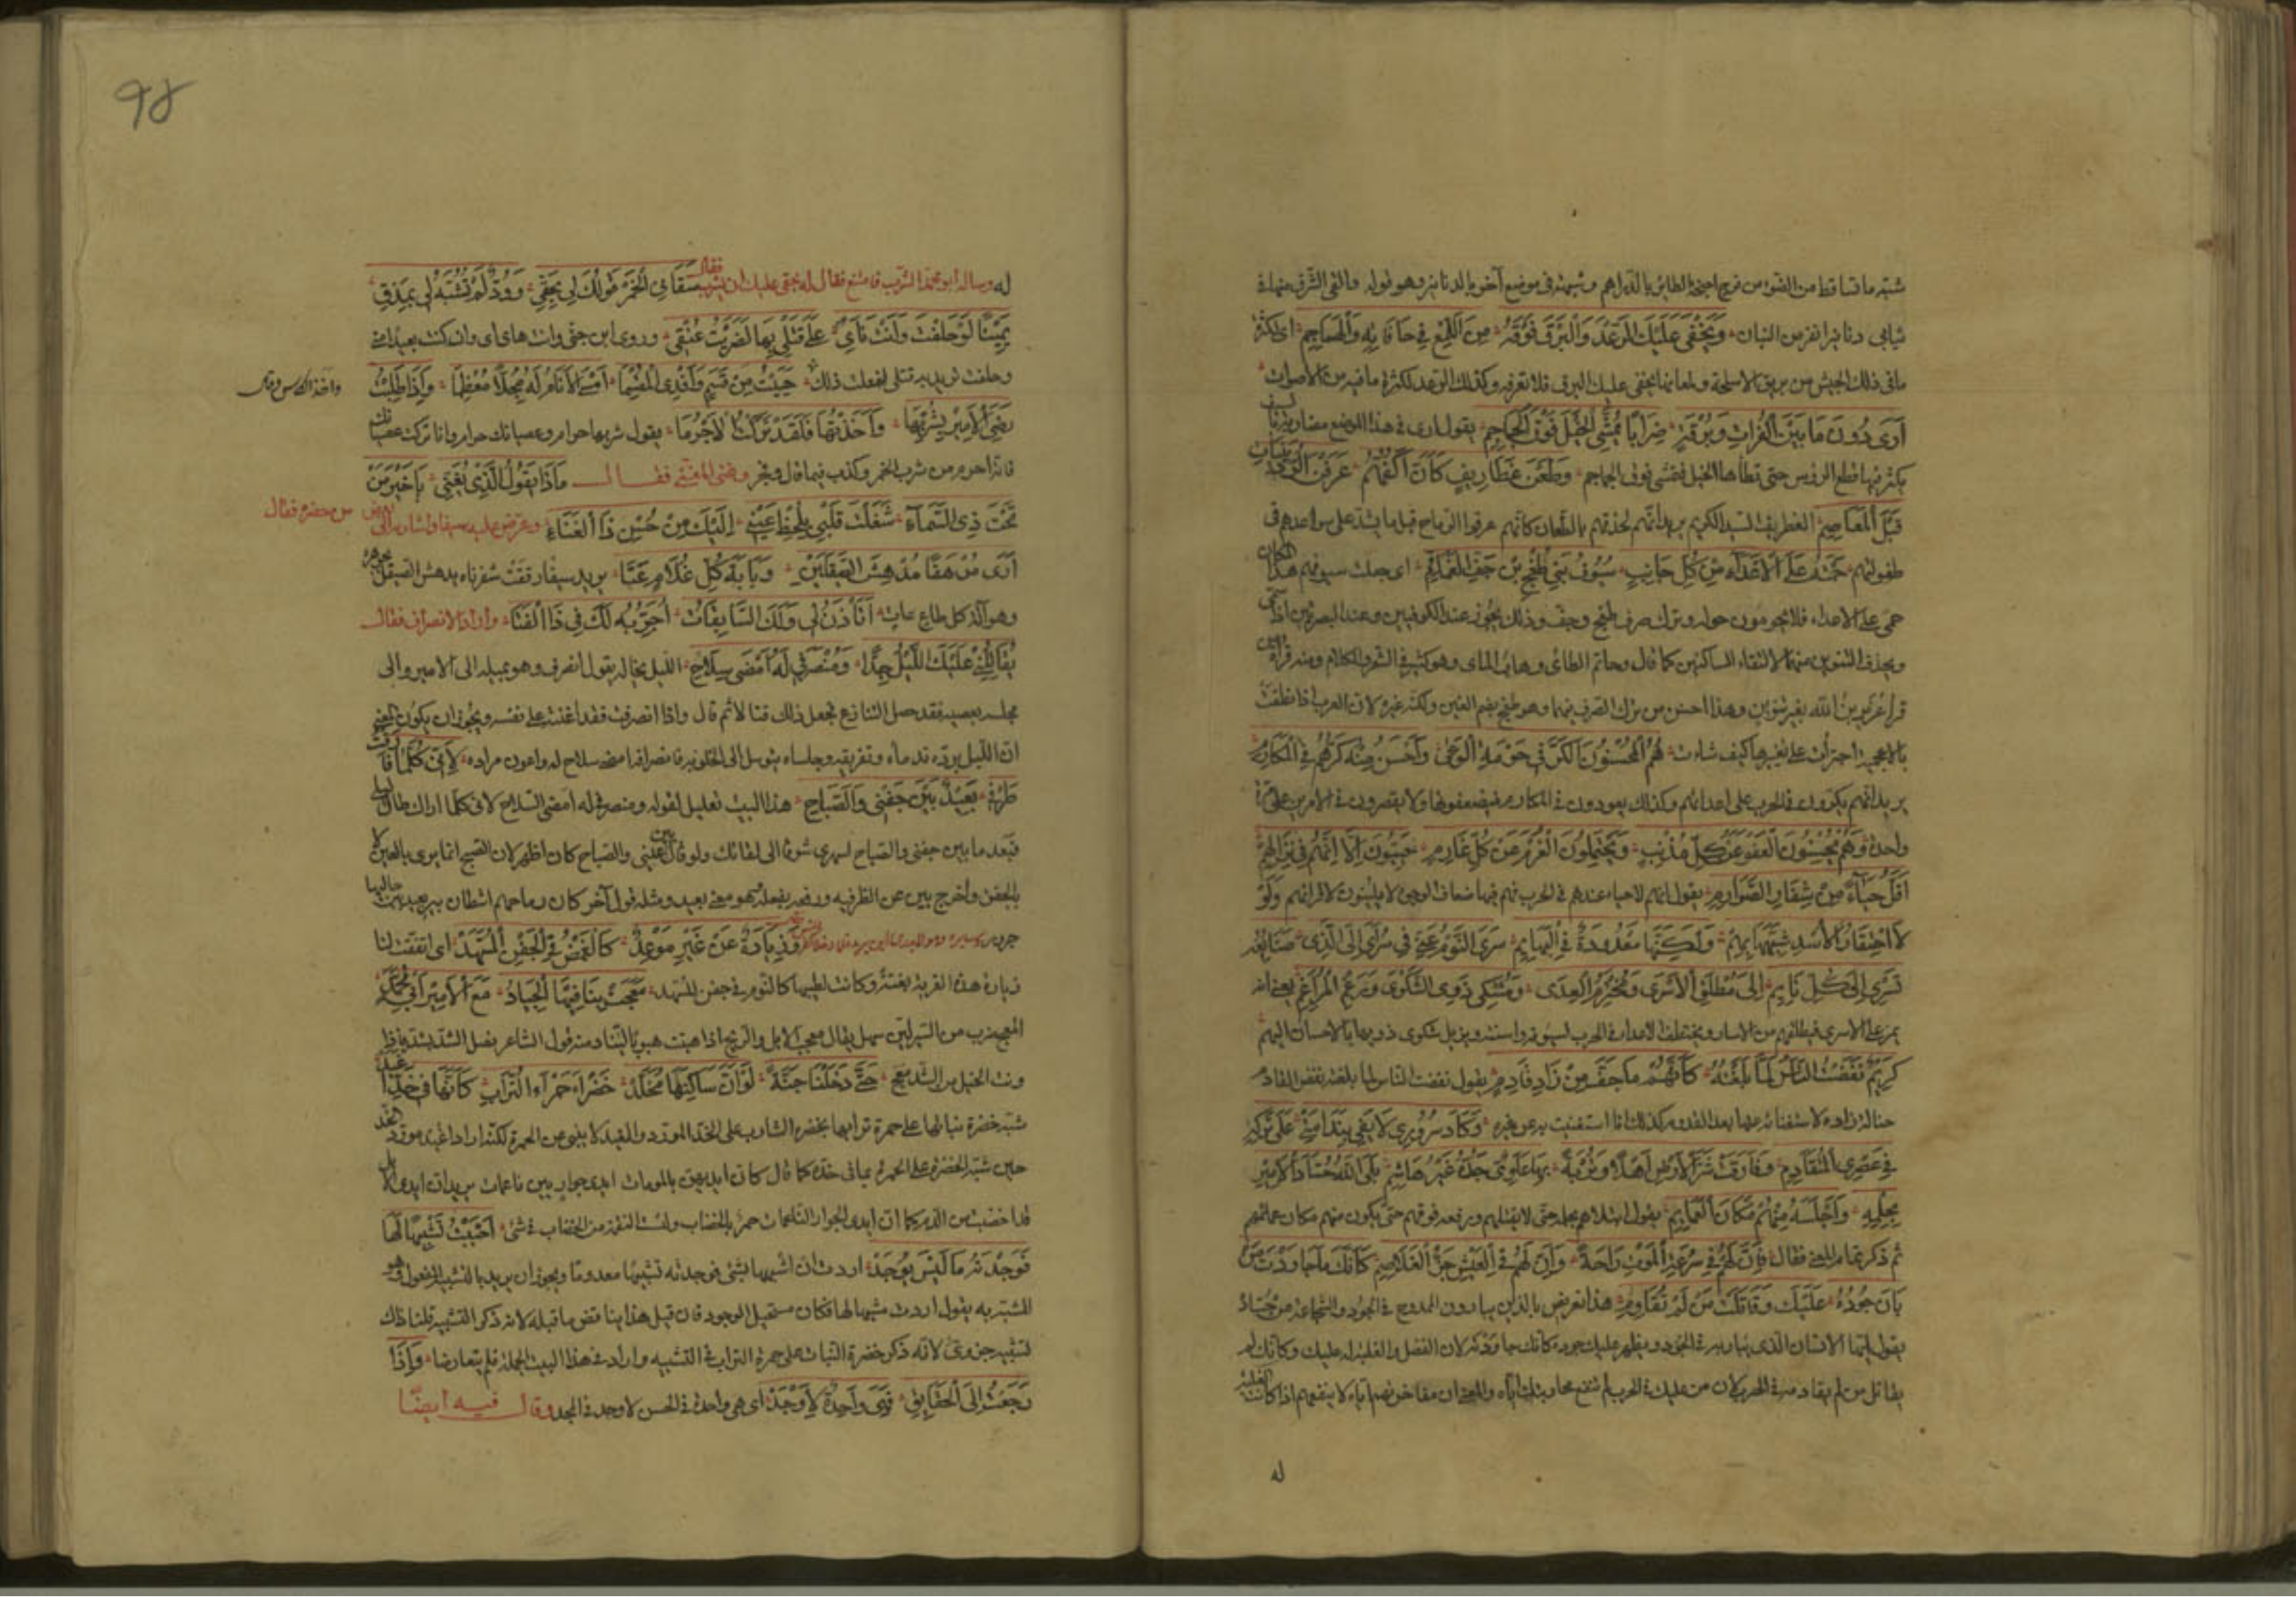 شبّه ما تساقط من الضوء من فرج اجنحة الطائر بالدراهم وشبهه فى موضع آخر بالدنانير وهو قوله والقى الشرق منها فى
ثيابى دنانيرا تفر من البنان وَيَخْفَى عَلَيْكَ الرَّعْدُ وَالْبَرْقُ فَوْقَهُ مِنَ اللَّمْعِ فِى حَافَاتِهِ وَالْهَمَاهِمِ اى لكثرة
ما فى ذلك الجيش من بريق الاسلحة ولمعانها يخفى عليك البرق فلا تعرفه وكذلك الرعد لكثرة ما فيه من الاصوات
أَرَى دُونَ مَا بَيْنَ الْفُرَاتِ وَبُرْقَةٍ ضِرَابًا يُمَشِّى الْخَيْلَ فَوْقَ الْجَمَاجِمِ يقول ارى فى هذا الموضع مضاربة
يكثر فيها قطع الرؤس حتى تطأها الخيل فتمشى فوق الجماجم وَطَعْنَ غَطَارِيفٍ كَأَنَّ أَكُفَّهُمْ عَرَفْنَ الرُّدَيْنِيَّاتِ
قَبْلَ الْمَعَاصِمِ الغطريف السيد الكريم يريد انهم لحذقهم بالطعان كأنهم عرفوا الرماح قبل ما يشد على سواعدهم فى
طفولتهم حَمَتْهُ عَلَى الْأَعْدَاءِ مِنْ كُلِّ جَانِبٍ سُيُوفُ بَنِى طُغْجِ بْنِ جَفِّ الْقَمَاقِمِ اى جعلت سيوفهم هذا المكان
حمى على الاعداء فلا يحومون حوله وترك صرف طغج وجف وذلك يجوز عند الكوفيين وعند البصريين
ويحذف التنوين منهما لالتقاء الساكنين كما قال وحاتم الطائى وهاب المائ وهو كثير فى الشعر والكلام ومنه قراءة من
قرأ عزير بن الله بغير تنوين وهذا احسن من ترك الصرف فيهما وهو طغج بضم الغين ولكنه غيره لان العرب اذا نطقت
بالاعجمية اجترأت على تغييرها كيف شاءت هُمُ الْمُحْسِنُونَ الْكَرَّ فِى حَوْمَةِ الْوَغَى وَأَحْسَنُ مِنْهُ كَرُّهُمْ فِى الْمَكَارِمِ
يريد انهم يكرون فى الحرب على اعدائهم وكذلك يعودون فى المكارم فيضعفونها ولا يقتصرون فى الامرين على مرة
واحدة وَهُمْ يُحْسِنُونَ الْعَفْوَ عَنْ كُلِّ مُذْنِبٍ وَيَحْتَمِلُونَ الْغُرْمَ عَنْ كُلِّ غَارِمِ حَيِيُّونَ إِلَّا أَنَّهُمْ فِى نِزَالِهِمْ
أَقَلُّ حَيَاءً مِنْ شِفَارِ الصَّوَارِمِ يقول انهم لا حياء عندهم فى الحرب فهم فيها صفاق الوجوه لا يلينون لاقرانهم وَلَوْ
لَا احْتِقَارُ الْأُسْدِ شَبَّهْتُهَا بِهِمْ وَلَكِنَّهَا مَعْدُودَةٌ فِى الْبَهَائِمِ سَرَى النَّوْمُ عَنِّى فِى سُرَاىَ إِلَى الَّذِى صَنَائِعُهُ
تَسْرِى إِلَى كُلِّ نَائِمِ إِلَى مُطْلِقِ الْأَسْرَى وَمُخْتَرِمِ الْعِدَى وَمُشْكِى ذَوِى الشَّكْوَى وَرَغْمِ الْمُرَاغِمِ يعنى انه
يمن على الاسرى فيطلقهم من الاسار ويختطف الاعداء فى الحرب بسيوفه واسنته ويزيل شكوى ذويها بالاحسان اليهم
كَرِيمٌ نَفَضْتُ النَّاسَ لَمَّا بَلَغْتُهُ كَأَنَّهُمُ مَا جَفَّ مِنْ زَادِ قَادِمِ يقول نفضت الناس لما بلغته نفض القادم
حثالة زاده لاستغنائه عنها بعد القدوم كذلك انا استغنيت به عن غيره وَكَادَ سُرُورِى لَا يَفِى بِنَدَامَتِى عَلَى تَرْكِهِ
فِى عُمْرِىَ الْمُتَقَادِمِ وَفَارَقْتُ شَرَّ الْأَرْضِ أَهْلًا وَتُرْبَةً بِهَا عَلَوِىٌّ جَدُّهُ غَيْرُ هَاشِمِ بَلَى اللَّهُ حُسَّادَ الْأَمِيرِ
بِحِلْمِهِ وَأَجْلَسَهُ مِنْهُمْ مَكَانَ الْعَمَائِمِ يقول ابتلاهم بحلمه حتى لا يقتلهم ورفعه فوقهم حتى يكون منهم مكان عمائمهم
ثم ذكر تمام المعنى فقال فَإِنَّ لَهُمْ فِى سُرْعَةِ الْمَوْتِ رَاحَةً وَإِنَّ لَهُمْ فِى الْعَيْشِ حَزَّ الْغَلَاصِمِ كَأَنَّكَ مَا جَاوَدْتَ مَنْ
بَانَ جُودُهُ عَلَيْكَ وَقَاتَلْتَ مَنْ لَمْ تُقَاوِمِ هذا تعريض بالذين يبارون الممدوح فى الجود والشجاعة من حساده
يقول ايها الانسان الذى يباريه فى الجود ويظهر عليك جوده كأنك ما جاودته لان الفضل والغلبة له عليك وكأنك لم
يقاتل من لم يقاومه فى الحرب لان من غلبك فى الحرب لم تنفع محاربتك اياه والمعنى ان مفاخرتهم اياه لا ينفعهم اذا كانت الغلبة
له
98
له وساله ابو محمد الشرب فامتنع فقال له بحقى عليك ان شربت فقال سَقَانِى الْخَمْرَ قَوْلُكَ لِى بِحَقِّى وَوُدٌّ لَمْ تَشُبْهُ لِى بِمَذْقِ
يَمِينًا لَوْ حَلَفْتَ وَأَنْتَ نَاءٍ عَلَى قَتْلِى بِهَا لَضَرَبْتُ عُنْقِى وروى ابن جنى وانت ناى اى وان كنت بعيدا منى
وحلفت تريد به قتلى لفعلت ذلك حُيِّيتَ مِنْ قَسَمٍ وَأَفْدِى الْمُقْسِمَا أَمْسَى الْأَنَامُ لَهُ مُجِلًّا مُعْظِمًا وَإِذَا طَلَبْتُ
واخذ الكاس وقال
رِضَى الْأَمِيرِ بِشُرْبِهَا وَأَخَذْتُهَا فَلَقَدْ تَرَكْتُ الْأَحْرَمَا يقول شربها حرام وعصيانك حرام وانا تركت عصيانك
فانه احرم من شرب الخمر وكذب فيما قال وفجر وغنى المغنى فقال مَاذَا يَقُولُ الَّذِى يُغَنِّى يَا خَيْرَ مَنْ
تَحْتَ ذِى السَّمَاءِ شَغَلْتَ قَلْبِى بِلَحْظِ عَيْنِى إِلَيْكَ مِنْ حُسْنِ ذَا الْغِنَاءِ وعرض عليه سيفا واشار به الى بعض
من حضره فقال
أَرَى مُرْهَفًا مُدْهِشَ الصَّيْقَلَيْنِ وَبَابَةَ كُلِّ غُلَامٍ عَتَا يريد سيفا رققت شفرتاه يدهش الصيقل بجوهره
وهو آلة كل طاغ عات أَتَأْذَنُ لِى وَلَكَ السَّابِقَاتُ أُجَرِّبُهُ لَكَ فِى ذَا الْفَتَى واراد الانصراف فقال
يُقَاتِلُنِى عَلَيْكَ اللَّيْلُ جِدًّا وَمُنْصَرَفِى لَهُ أَمْضَى سِلَاحِ
مجلسه يعصيه فقد حصل التنازع فجعل ذلك قتالا ثم قال واذا انصرفت فقد اعنته على نفسى ويجوز ان يكون المعنى
لِأَنِّى كُلَّمَا فَارَقْتُ
طَرْفِى بَعِيدٌ بَيْنَ جَفْنِى وَالصَّبَاحِ هذا البيت تعليل لقوله ومنصرفى له امضى السلاح لانى كلما لم ارك طال ليلى
فبعد ما بين جفنى والصباح لسهرى شوقا الى لقائك ولو قال بين عينى والصباح كان اظهر لان الصبح انما يرى بالعين لا
بالجفن واخرج بين عن الظرفيه ورفعه بفعله وهو معنى بعيد ومثله قول آخر كان رماحهم اشطان بئر بعيد بين جاليها
جرور وَزِيَارَةٍ عَنْ غَيْرِ مَوْعِدْ كَالْغُمْضِ فِى الْجَفْنِ الْمُسَهَّدْ اى اتفقت لنا
زيارة هذه القرية بغتة وكانت لطيبها كالنوم فى جفن المسهد مَعَجَتْ بِنَا فِيهَا الْجِيَادُ مَعَ الْأَمِيرِ أَبِى مُحَمَّدْ
المعج ضرب من السير لين سهل يقال معج الابل والريح اذا هبت هبوبا لينا
حَتَّى دَخَلْنَا جَنَّةً لَوْ أَنَّ سَاكِنَهَا مُخَلَّدْ خَضْرَاءَ حَمْرَاءَ التُّرَابِ كَأَنَّهَا فِى خَدِّ أَغْيَدْ
شبه خضرة نباتها على حمرة ترابها بخضرة الشارب على الخد المورد والغيد لا ينبئ عن الحمرة لكنه اراد اغيد مورد الخد
حين شبه الخضرة على الحمرة بما فى خده كما قال كان ايديهن بالموماة ايدى جوار بتن ناعمات يريد ان ايدى الابل
قد اخضبت من الدم كما ان ايدى الجوار الناعمات حمر بالخضاب وليست النعمة من الخضاب فى شئ أَحْبَبْتُ تَشْبِيهًا لَهَا
فَوَجَدْتُهُ مَا لَيْسَ يُوجَدْ اردت ان اشبهها بشئ فوجدته تشبيها معدوما ويجوز ان يريد بالتشبيه المفعول وهو
المشبه به يقول اردت مشبها لها فكان مستحيل الوجود فان قيل هذا يناقض ما قبله لانه ذكر التشبيه قلنا ذاك
تشبيه جزوى لانه ذكر خضرة النبات على حمرة التراب فى التشبيه واراد فى هذا البيت الجملة فلم يتعارضا وَإِذَا
رَجَعْتَ إِلَى الْحَقَائِقِ فَهِىَ وَاحِدَةٌ لِأَوْحَدْ اى هى واحدة فى الحسن لاوحد فى المجد وقال فيه ايضا